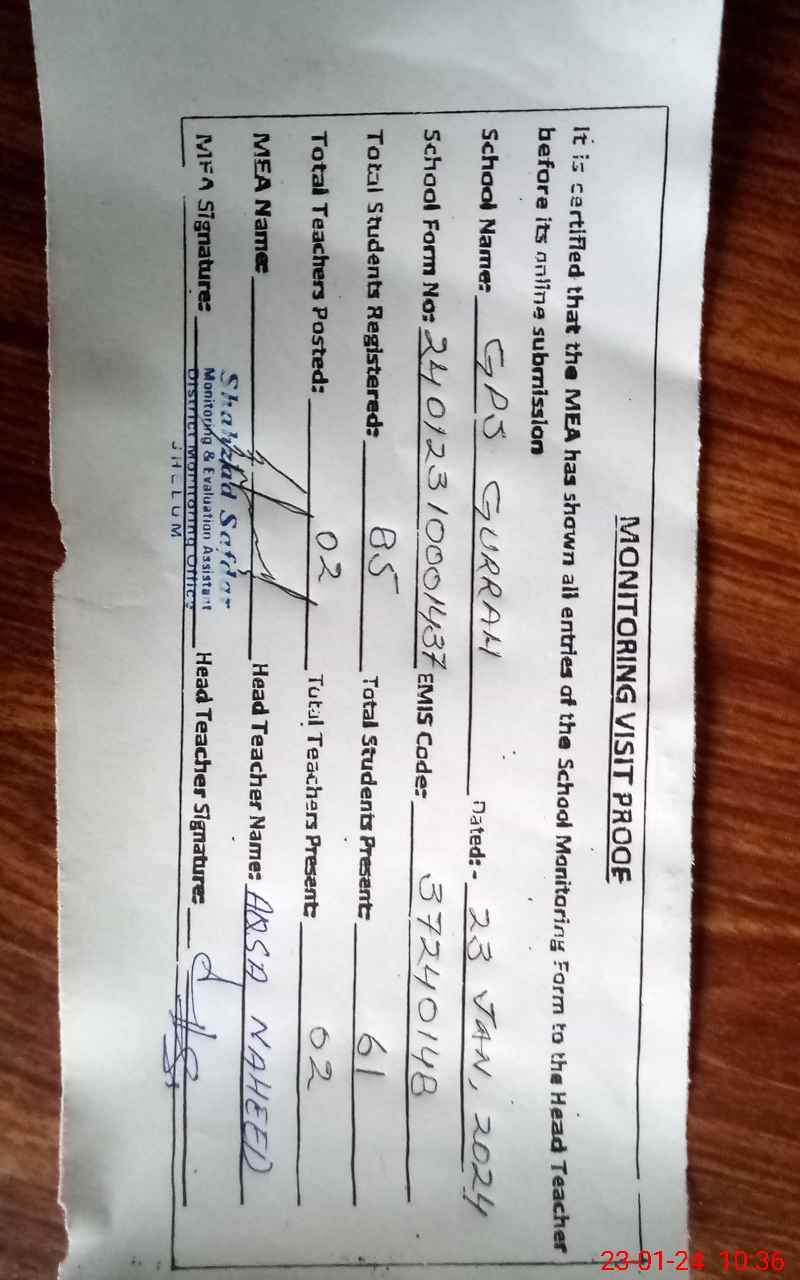 MONITORING VISIT PROOF
It is certified that the MEA has shown all entries of the School Monitoring Form to the Head Teacher
before its online submission
School Name: GPS GURRAH Dated:- 23 JAN, 2024
School Form No: 240123100001437 EMIS Code: 37240148
Total Students Registered: 85 Total Students Present: 61
Total Teachers Posted: 02 Total Teachers Present: 02
MEA Name: Head Teacher Name: AQSA NAHEED
Shahzad Safdar
Monitoring & Evaluation Assistant
MEA Signature: District Monitoring Office Head Teacher Signature:
JHELUM
23-01-24 10:36